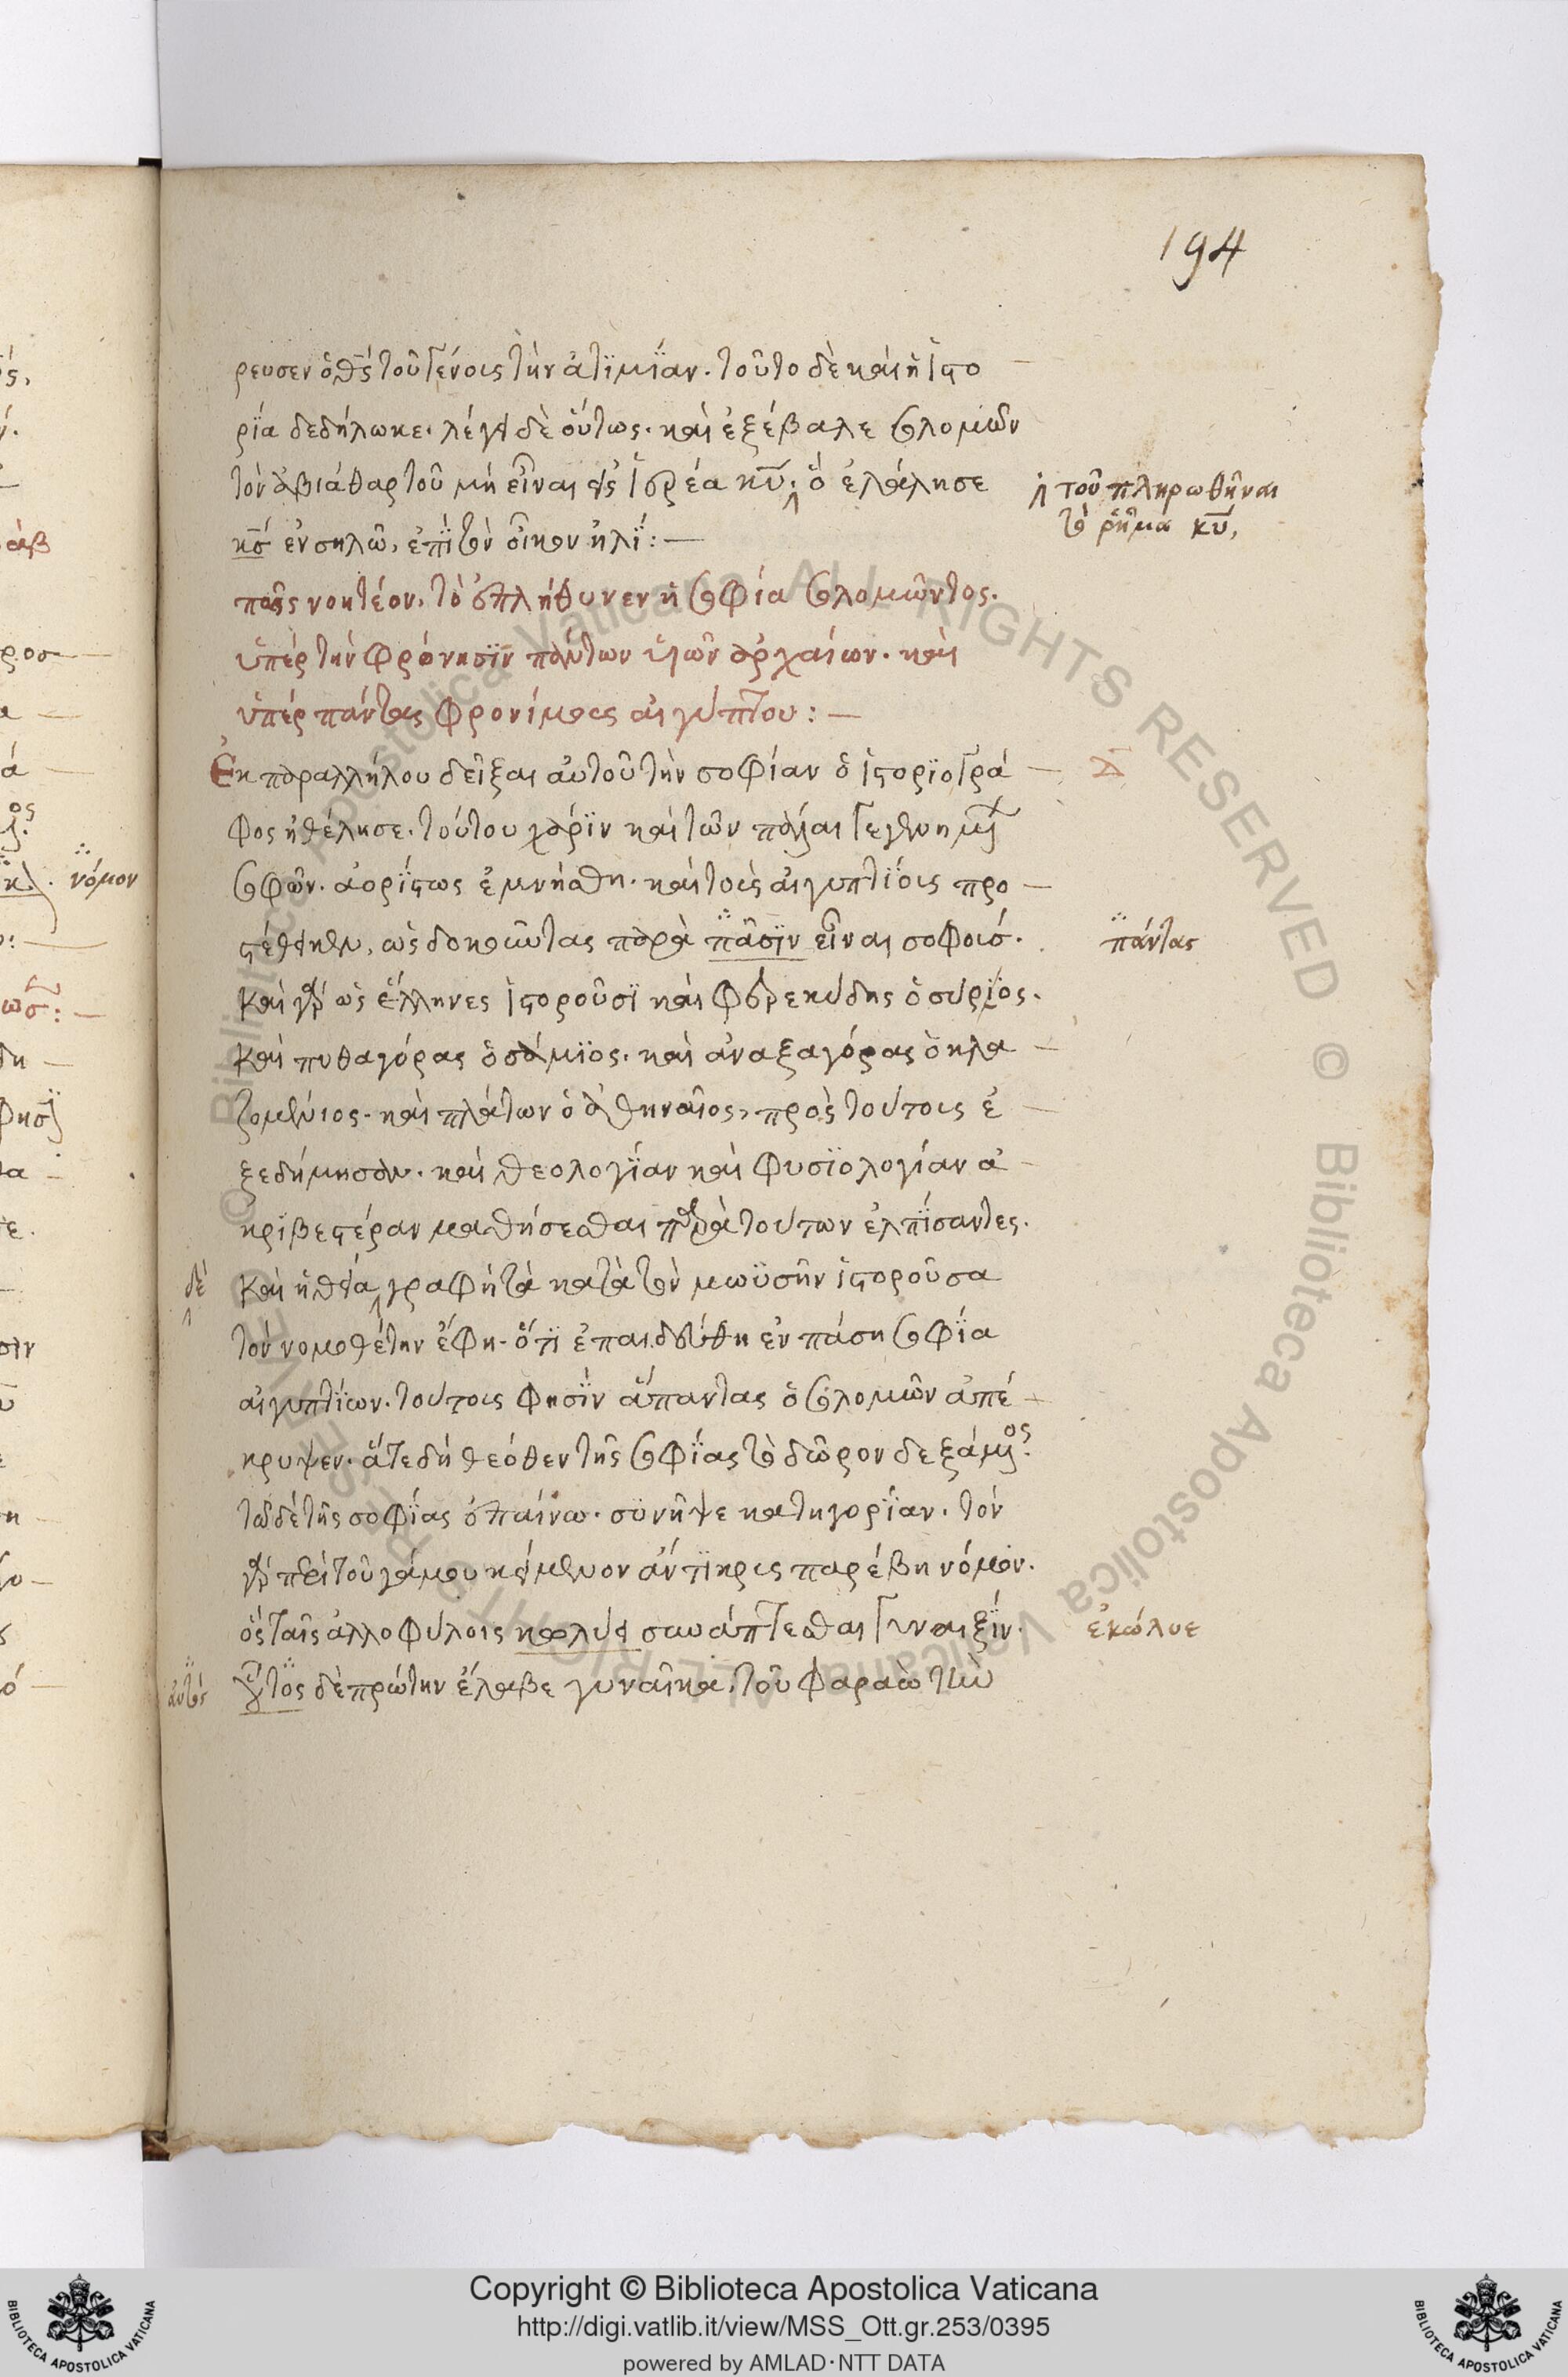 194
ρευσεν ὁ θς τοῦ γένους τὴν ἀτϊμΐαν. τοῦτο δὲ καὶ ἡ ἱστο
ρΐα δεδήλωκε. λέγει δὲ οὕτως. καὶ ἐξέβαλε σολομὼν
τὸν ἀβιάθαρ τοῦ μὴ εἶναι εἰς ἱερέα κυ. ὁ ἐλάλησε
ἢ τοῦ πληρωθῆναι
τὸ ῥῆμα κυ,
κς ἐν σηλῶ, ἐπῒ τὸν οἶκον ἠλΐ: —
πῶς νοητέον, τὸ ἐπλήθυνεν ἡ σοφία σολομῶντος.
ὑπὲρ τὴν φρόνησϊν πάντων υἱῶν ἀρχαίων. καὶ
ὑπὲρ πάντας φρονίμους αἰγύπτου: —
Ἐκ παραλλήλου δεῖξαι αὐτοῦ τὴν σοφίαν ὁ ἱστορϊογρά
φος ἠθέλησε. τούτου χάρϊν καὶ τῶν πάλαι γεγενημ
σοφῶν. ἀορΐστως ἐμνήσθη. καὶ τοὺς αἰγυπτΐους προ
στέθεικεν, ὡς δοκοῦντας παρὰ πᾶσϊν εἶναι σοφούσ.
πάντας
Καὶ γὰρ ὡς ἕλληνες ἱστοροῦσϊ καὶ φερεκύδης ὁ σύρϊος.
Καὶ πυθαγόρας ὁ σάμϊος. καὶ ἀναξαγόρας ὁ κλα
ζομένιος. καὶ πλάτων ὁ ἀθηναῖος, πρὸς τούτοις ἐ
ξεδήμησαν. καὶ θεολογΐαν καὶ φυσϊολογίαν ἀ
κρϊβεστέραν μαθήσεσθαι παρὰ τούτων ἐλπΐσαντες.
δὲ Καὶ ἡ θεία γραφὴ τὰ κατὰ τὸν μωϋσῆν ἱστοροῦσα
τὸν νομοθέτην ἔφη. ὅτϊ ἐπαιδεύθη ἐν πάση σοφΐα
αἰγυπτΐων. τούτοις φησῒν ἅπαντας ὁ σολομῶν ἀπέ
κρυψεν. ἅτε δὴ θεόθεν τῆς σοφΐας τὸ δῶρον δεξάμος.
τῶ δὲ τῆς σοφΐας ἐπαίνω. συνῆψε κατηγορΐαν. τὸν
γὰρ περὶ τοῦ γάμου κείμενον ἄντϊκρυς παρέβη νόμον.
ὃς ταῖς ἀλλοφύλοις κωλύει συνάπτεσθαι γυναιξΐν.
ἐκώλυε
αὐτὸς οὗτος δὲ πρώτην ἔλαβε γυναῖκα, τοῦ φαραὼ τὴν
νόμον
Copyright © Biblioteca Apostolica Vaticana
http://digi.vatlib.it/view/MSS_Ott.gr.253/0395
powered by AMLAD·NTT DATA